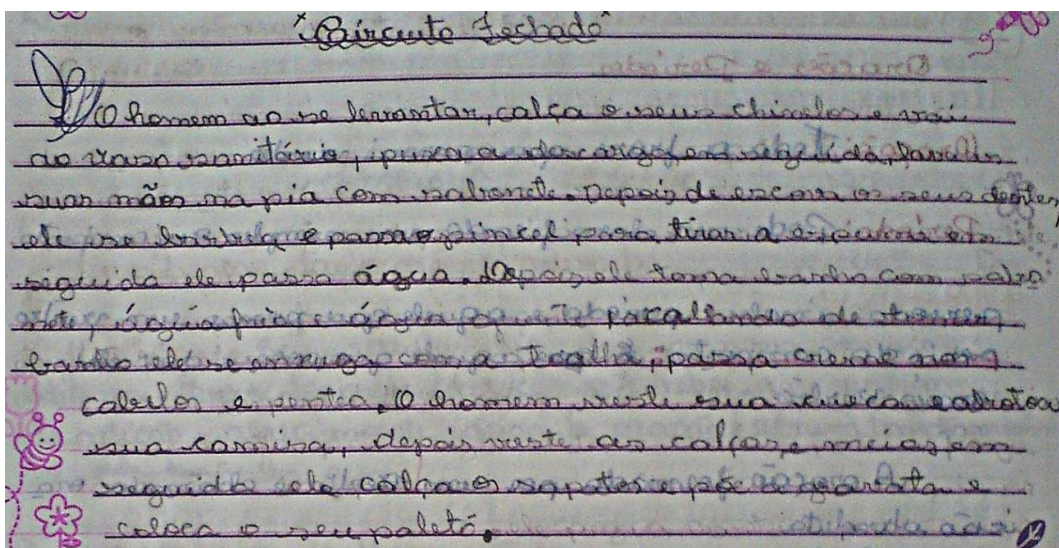 "Circuito Fechado"
O homem ao se levantar, calça o seus chinelos e vai
ao vaso sanitário, puxa a descarga, em seguida, lava
suas mãos na pia com sabonete. Depois de escovar os seus dentes,
ele se e passa o pincel para tirar a em
seguida ele passa água. Depois ele toma banho com sabo
nete, água fria e água de tomar
banho ele se enxuga com a toalha, passa creme nos
cabelos e pentea. O homem veste sua cueca e abotoa
sua camisa, depois veste as calças e meias, em
seguida ele calça os sapatos e põe a gravata e
coloca o seu paletó.